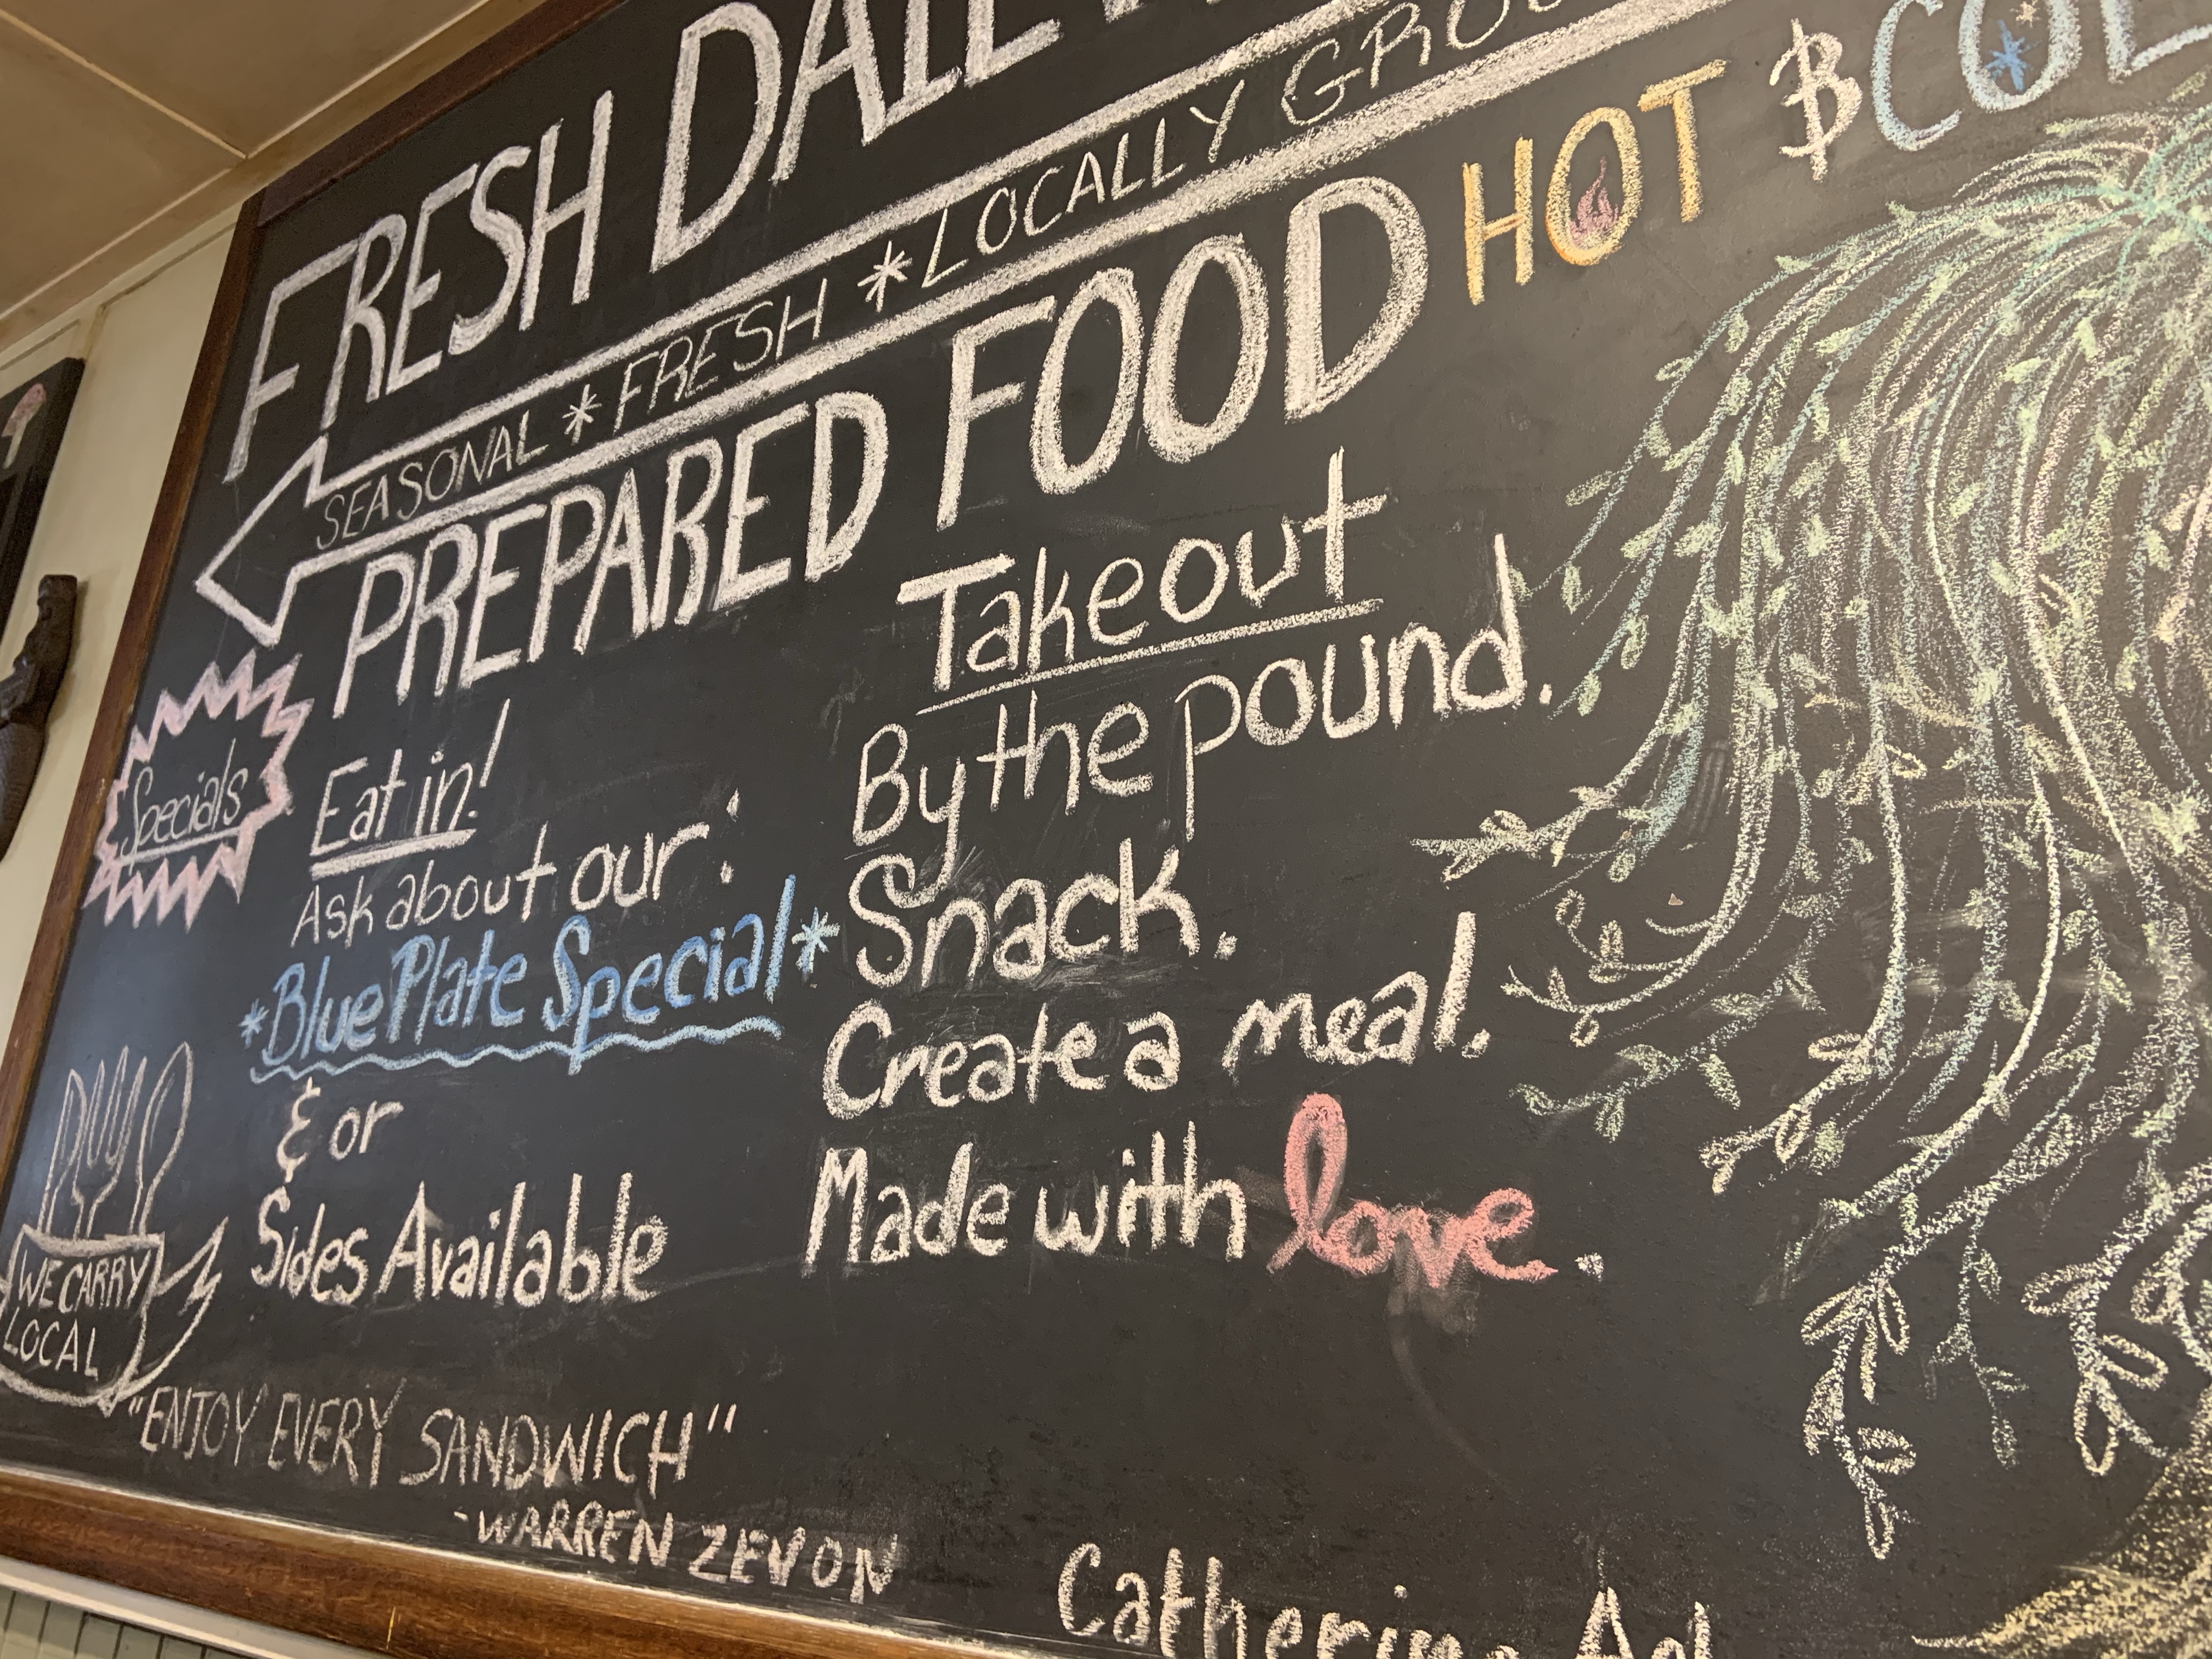 FRESH DAILY
SEASONAL * FRESH * LOCALLY GRO
PREPARED FOOD HOT & COL
Specials
Eat in!
Ask about our:
*Blue Plate Special*
& or
Sides Available
Takeout
By the pound.
Snack.
Create a meal.
Made with love.
WE CARRY
LOCAL
"ENJOY EVERY SANDWICH"
-WARREN ZEVON
Catherine